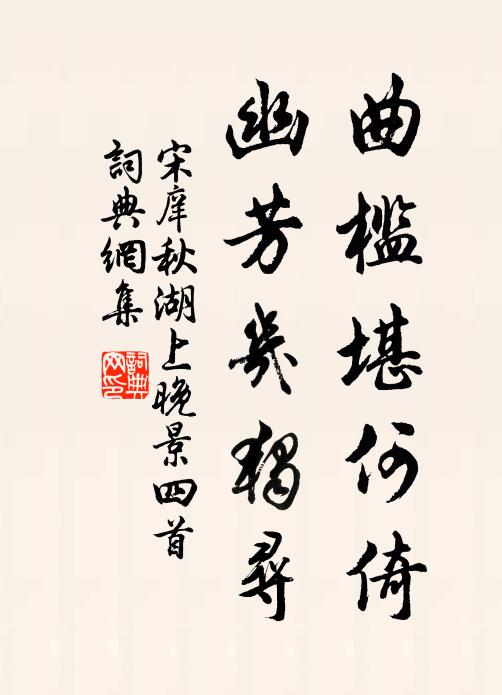 曲檻堪何倚
幽芳幾獨尋
宋庠秋湖上晚景四首
詞典網集
詞典
网印